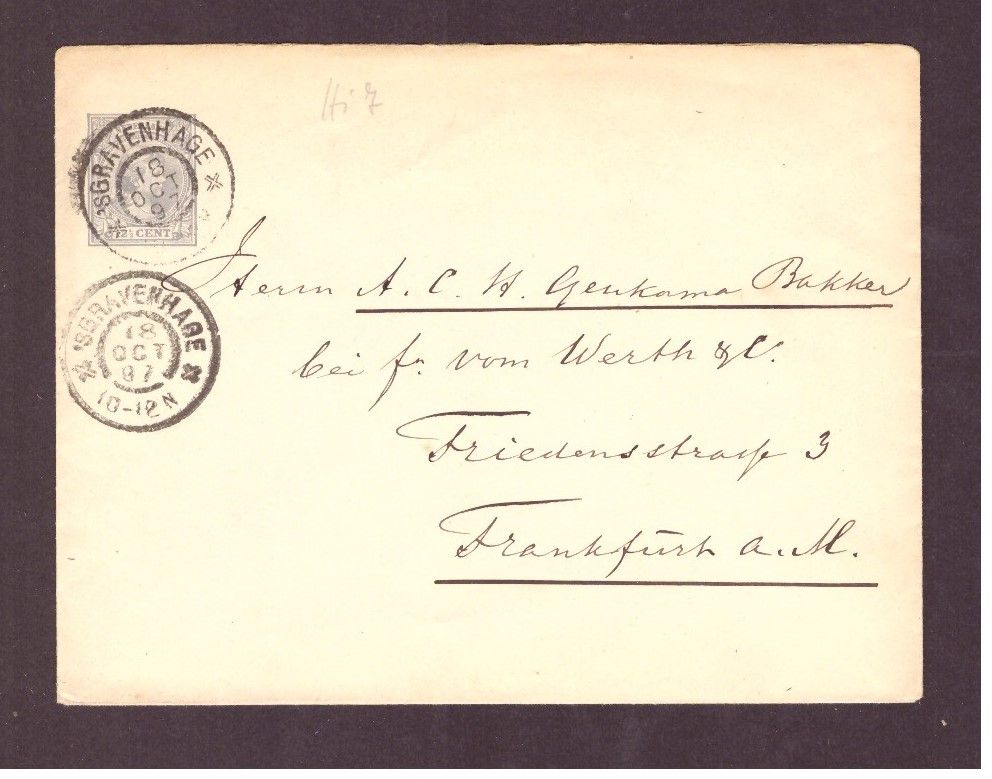 Hi 7
'SGRAVENHAGE
18
OCT
97
12½ CENT
Herrn A. C. H. Geukama Bakker
'SGRAVENHAGE
18
OCT
97
10-12N
bei fr vom Werth & C.
Friedensstraße 3
Frankfurt a. M.